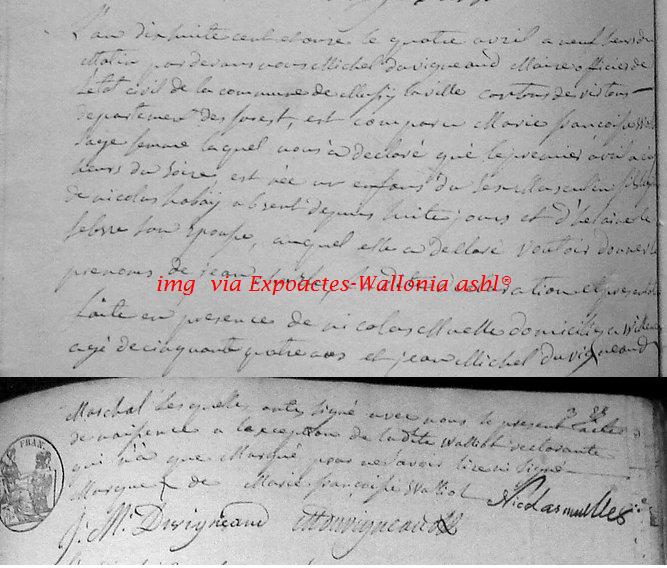 L'an dix huit cent et onze le quatre avril a neuf heurs du
Matin pardevans nous Michel Duvigneaud Maire officier de
l'etat civil de la commune de cantons de virtons
departement des forest, est comparu Marie françoise
sage femme laquel nous a declaré que le premier avril a
heurs du soire est née un enfans du sexe Masculin
de nicolas absent depuis huite jours et d'helaine le
febvre son epouse, auquel elle a declaré voutoir donner le
prenoms de jean
img via Expoactes-Wallonia asbl®
faite en presence de nicolas Muelle domicilie a
agé de cinquant quatre ans et jean Michel duvigneaud
Marchal lesquelles onte signé avec nous le present acte
de naisence a l'exception de la dite Walliot declarante
qui n'a que Marqué pour ne savoir lire ni signé
Marque de Marie françoise Walliot Nicolas muelles
J. M. Duvigneaud MDuvigneaud
FRAN